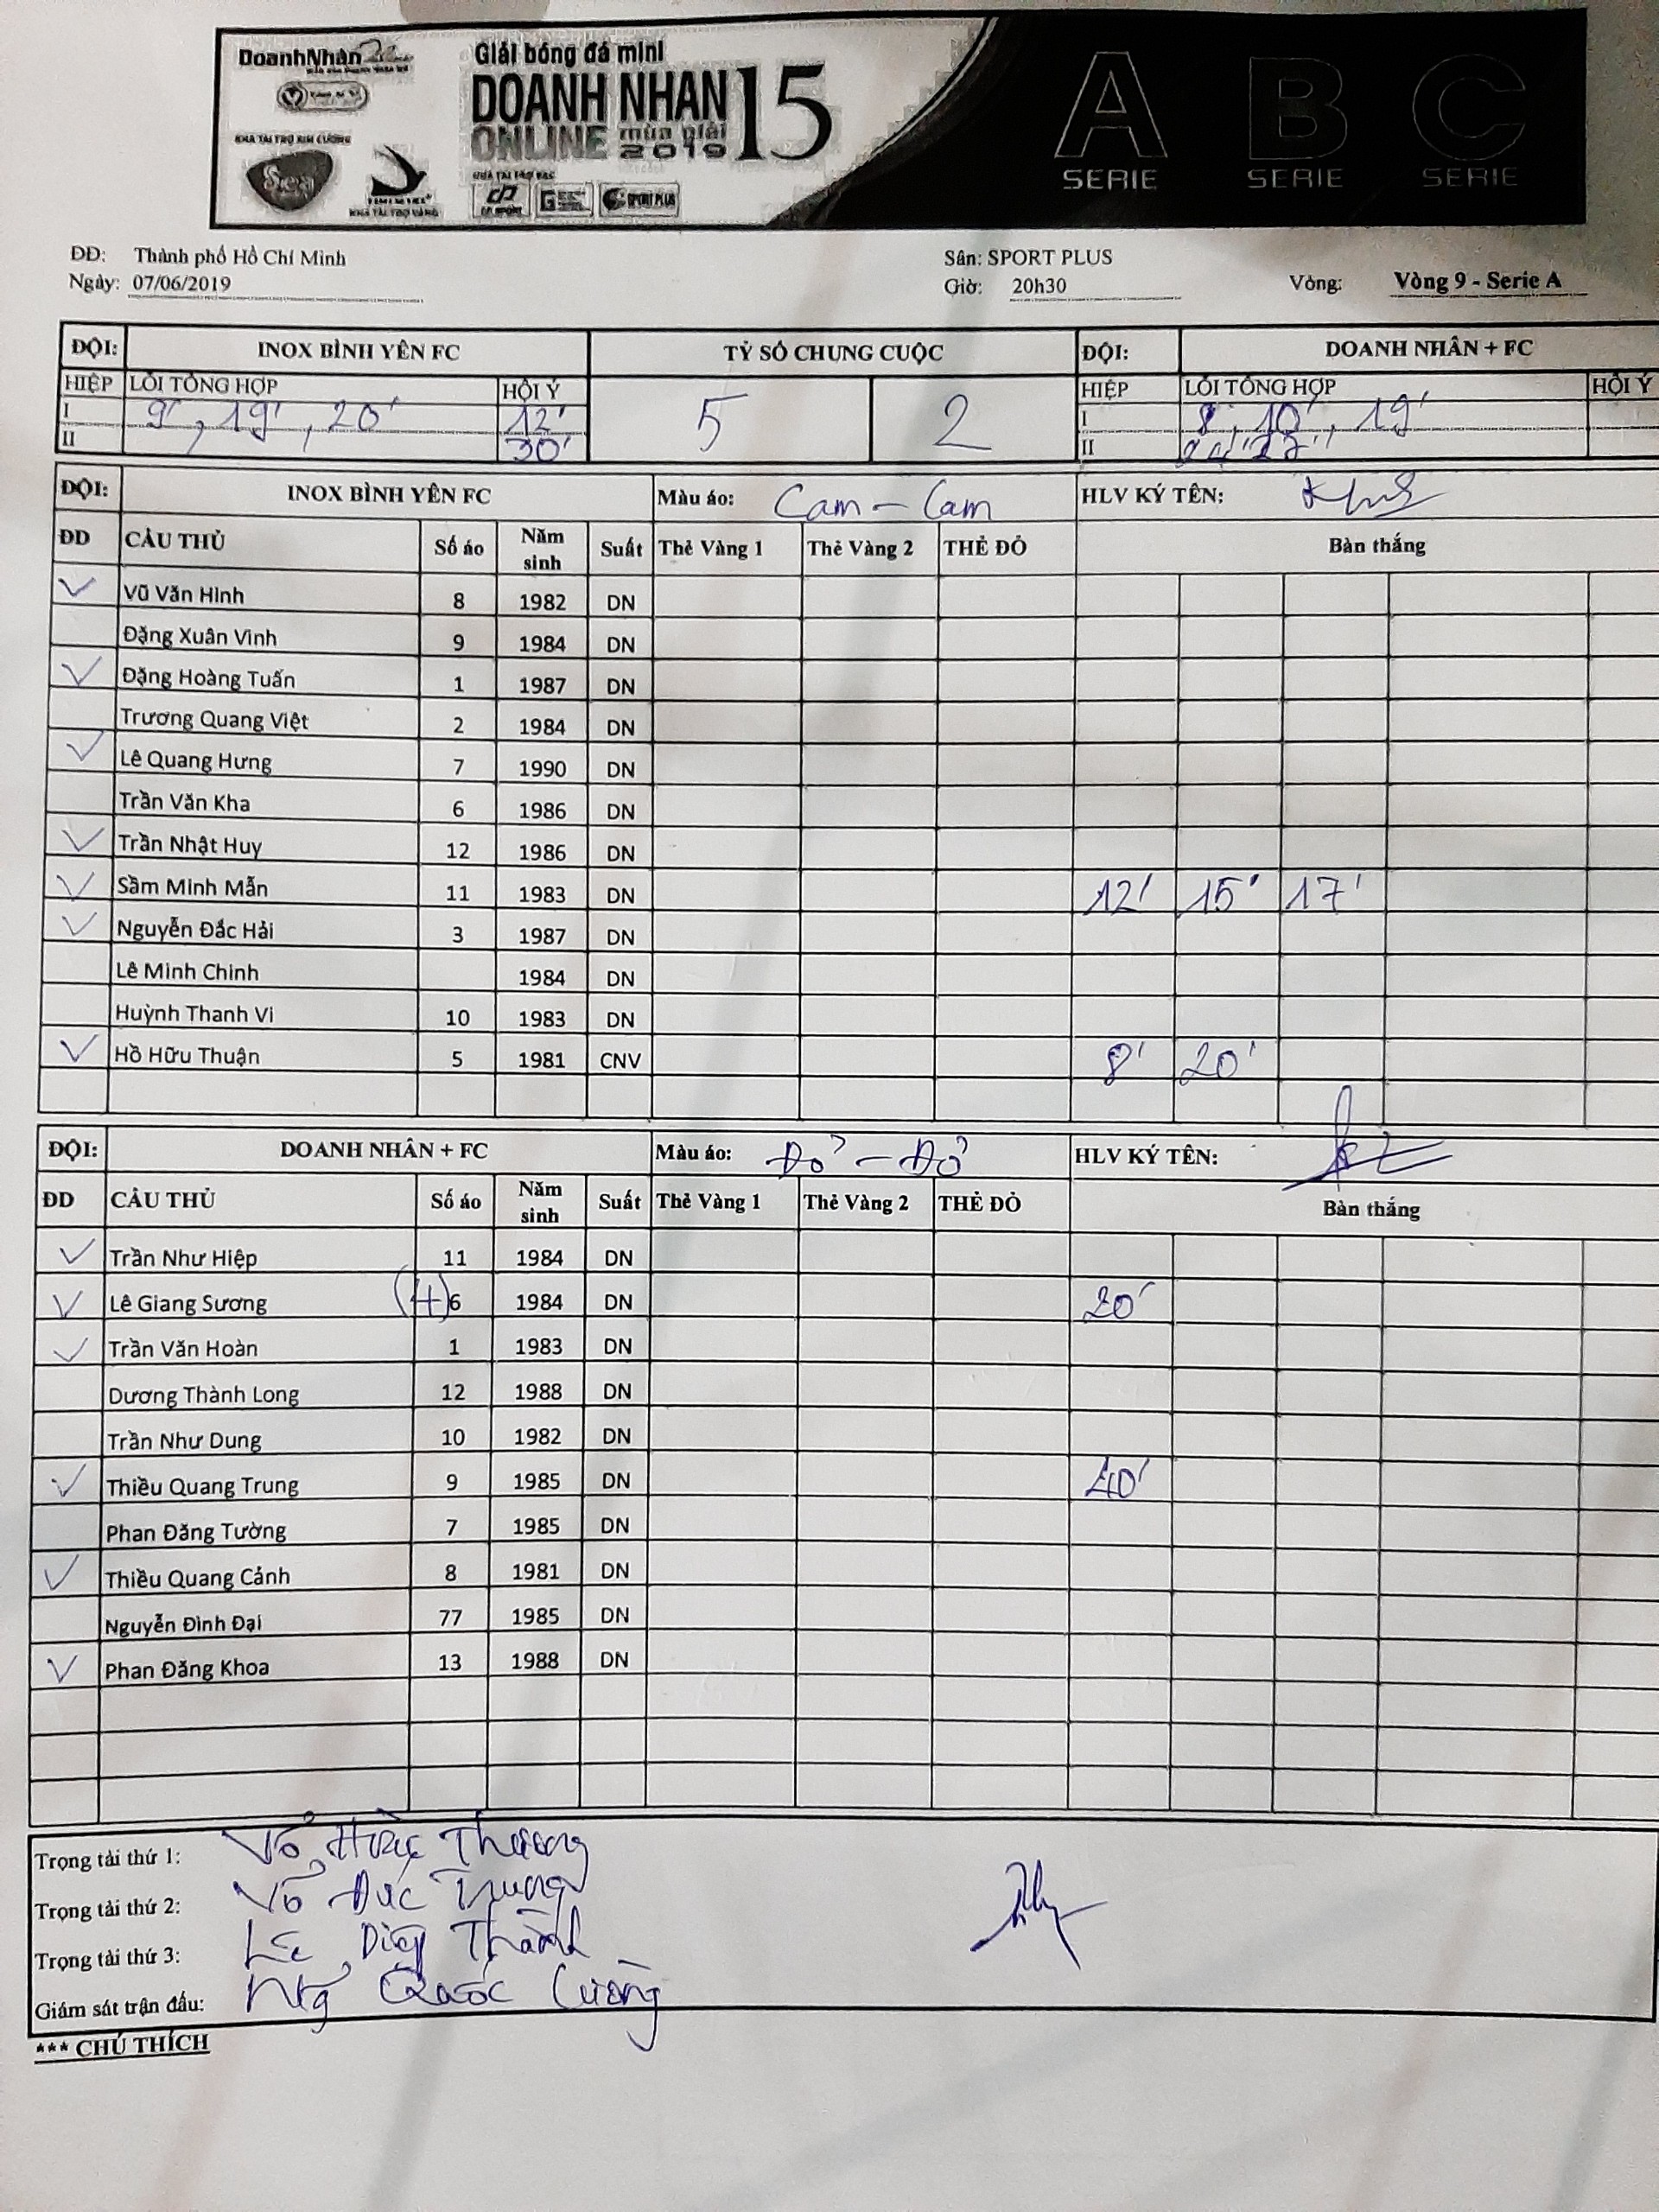 DoanhNhân
Giải bóng đá mini
DOANH NHAN 15
ONLINE mùa giải 2019
NHÀ TÀI TRỢ KIM CƯƠNG
Sea
NHÀ TÀI TRỢ VÀNG
NHÀ TÀI TRỢ BẠC
SPORT PLUS
A SERIE B SERIE C SERIE
ĐĐ: Thành phố Hồ Chí Minh Sân: SPORT PLUS
Ngày: 07/06/2019 Giờ: 20h30 Vòng: Vòng 9 - Serie A
ĐỘI: INOX BÌNH YÊN FC TỶ SỐ CHUNG CUỘC ĐỘI: DOANH NHÂN + FC
HIỆP LỖI TỔNG HỢP HỘI Ý 5 2 HIỆP LỖI TỔNG HỢP HỘI Ý
I 9', 19', 20' 12' I 8', 10', 19'
II 30' II 27'
ĐỘI: INOX BÌNH YÊN FC Màu áo: Cam - Cam HLV KÝ TÊN:
ĐD CẦU THỦ Số áo Năm sinh Suất Thẻ Vàng 1 Thẻ Vàng 2 THẺ ĐỎ Bàn thắng
Vũ Văn Hinh 8 1982 DN
Đặng Xuân Vinh 9 1984 DN
Đặng Hoàng Tuấn 1 1987 DN
Trương Quang Việt 2 1984 DN
Lê Quang Hưng 7 1990 DN
Trần Văn Kha 6 1986 DN
Trần Nhật Huy 12 1986 DN
Sầm Minh Mẫn 11 1983 DN 12' 15' 17'
Nguyễn Đắc Hải 3 1987 DN
Lê Minh Chinh 1984 DN
Huỳnh Thanh Vi 10 1983 DN
Hồ Hữu Thuận 5 1981 CNV 8' 20'
ĐỘI: DOANH NHÂN + FC Màu áo: Đỏ - Đỏ HLV KÝ TÊN:
ĐD CẦU THỦ Số áo Năm sinh Suất Thẻ Vàng 1 Thẻ Vàng 2 THẺ ĐỎ Bàn thắng
Trần Như Hiệp 11 1984 DN
Lê Giang Sương (4) 6 1984 DN 20'
Trần Văn Hoàn 1 1983 DN
Dương Thành Long 12 1988 DN
Trần Như Dung 10 1982 DN
Thiều Quang Trung 9 1985 DN 40'
Phan Đăng Tường 7 1985 DN
Thiều Quang Cảnh 8 1981 DN
Nguyễn Đình Đại 77 1985 DN
Phan Đăng Khoa 13 1988 DN
Trọng tài thứ 1: Võ Thương
Trọng tài thứ 2: Võ Đức Trung
Trọng tài thứ 3: Lê Thành
Giám sát trận đấu: Ng Quốc Cường
*** CHÚ THÍCH